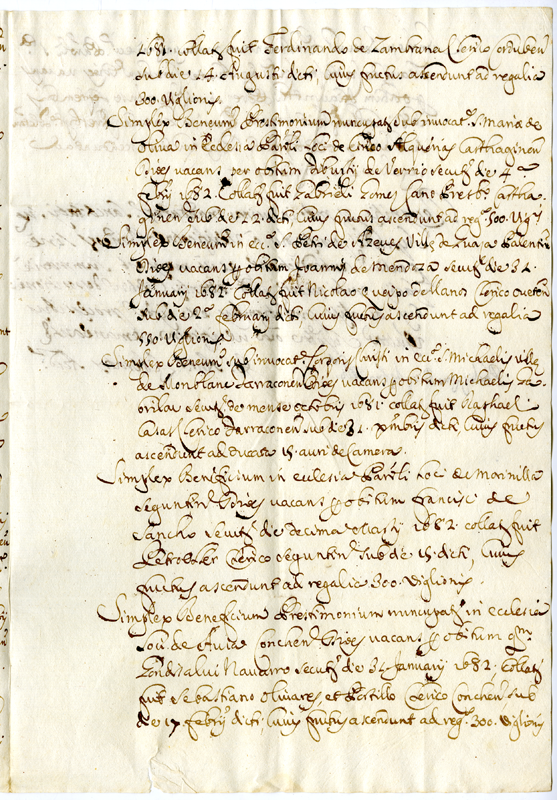 1681. collat. fuit Ferdinando de Zambrana Clerico Cordubeñ
sub die 24. Augusti dicti, cuius fructus ascendunt ad regalia
300. Viglionis.
Simplex Beneum Prestimonium nuncupat. sub invocat. S. Mariæ de
Oliva in Ecclesia Paroli loci de Carthaginen
Dioces vacans per obitum secut. die 4
febrij 1682. Collat. fuit Gabrieli Gomes
sub die 22. dicti, cuius fructus ascendunt ad reg. 300. Vig.
Simplex Beneum in ecc. S. Petri de Villæ de Palentin
Dioces vacans p obitum Joannis de Mendoza secut. die 31.
Januarij 1682. Collat. fuit Nicolao Queipo de llano Clerico Oveten
sub die 2. februarij dicti, cuius fructus ascendunt ad regalia
550. Viglionis.
Simplex Beneum sub invocat. Corporis Christi in ecc. S. Michaelis villæ
de Monblanc Tarraconen Dioces vacans p obitum Michaelis
secut. de mense octobris 1681. collat. fuit Raphaeli
Casas Clerico Tarraconen sub die 31. Xmbris dicti, cuius fructus
ascendunt ad ducata 15. auri de Camera.
Simplex Beneficium in ecclesia Paroli Loci de Marinilla
Seguntin Dioces vacans p obitum Francisci de
Sancho secut. die decima Martij 1682. collat. fuit
Petro Clerico Seguntin sub die 15. dicti, cuius
fructus ascendunt ad regalia 300. Viglionis.
Simplex Beneficium Prestimonium nuncupat. in ecclesia
loci de Conchen. Dioces vacans p obitum qm.
Gondisalui Navarro secut. die 31 Januarij 1682. Collat.
fuit Sebastiano Olivares, et Portillo Clerico Conchen. sub
die 17 febrij dicti, cuius fructus ascendunt ad reg. 300. Viglionis